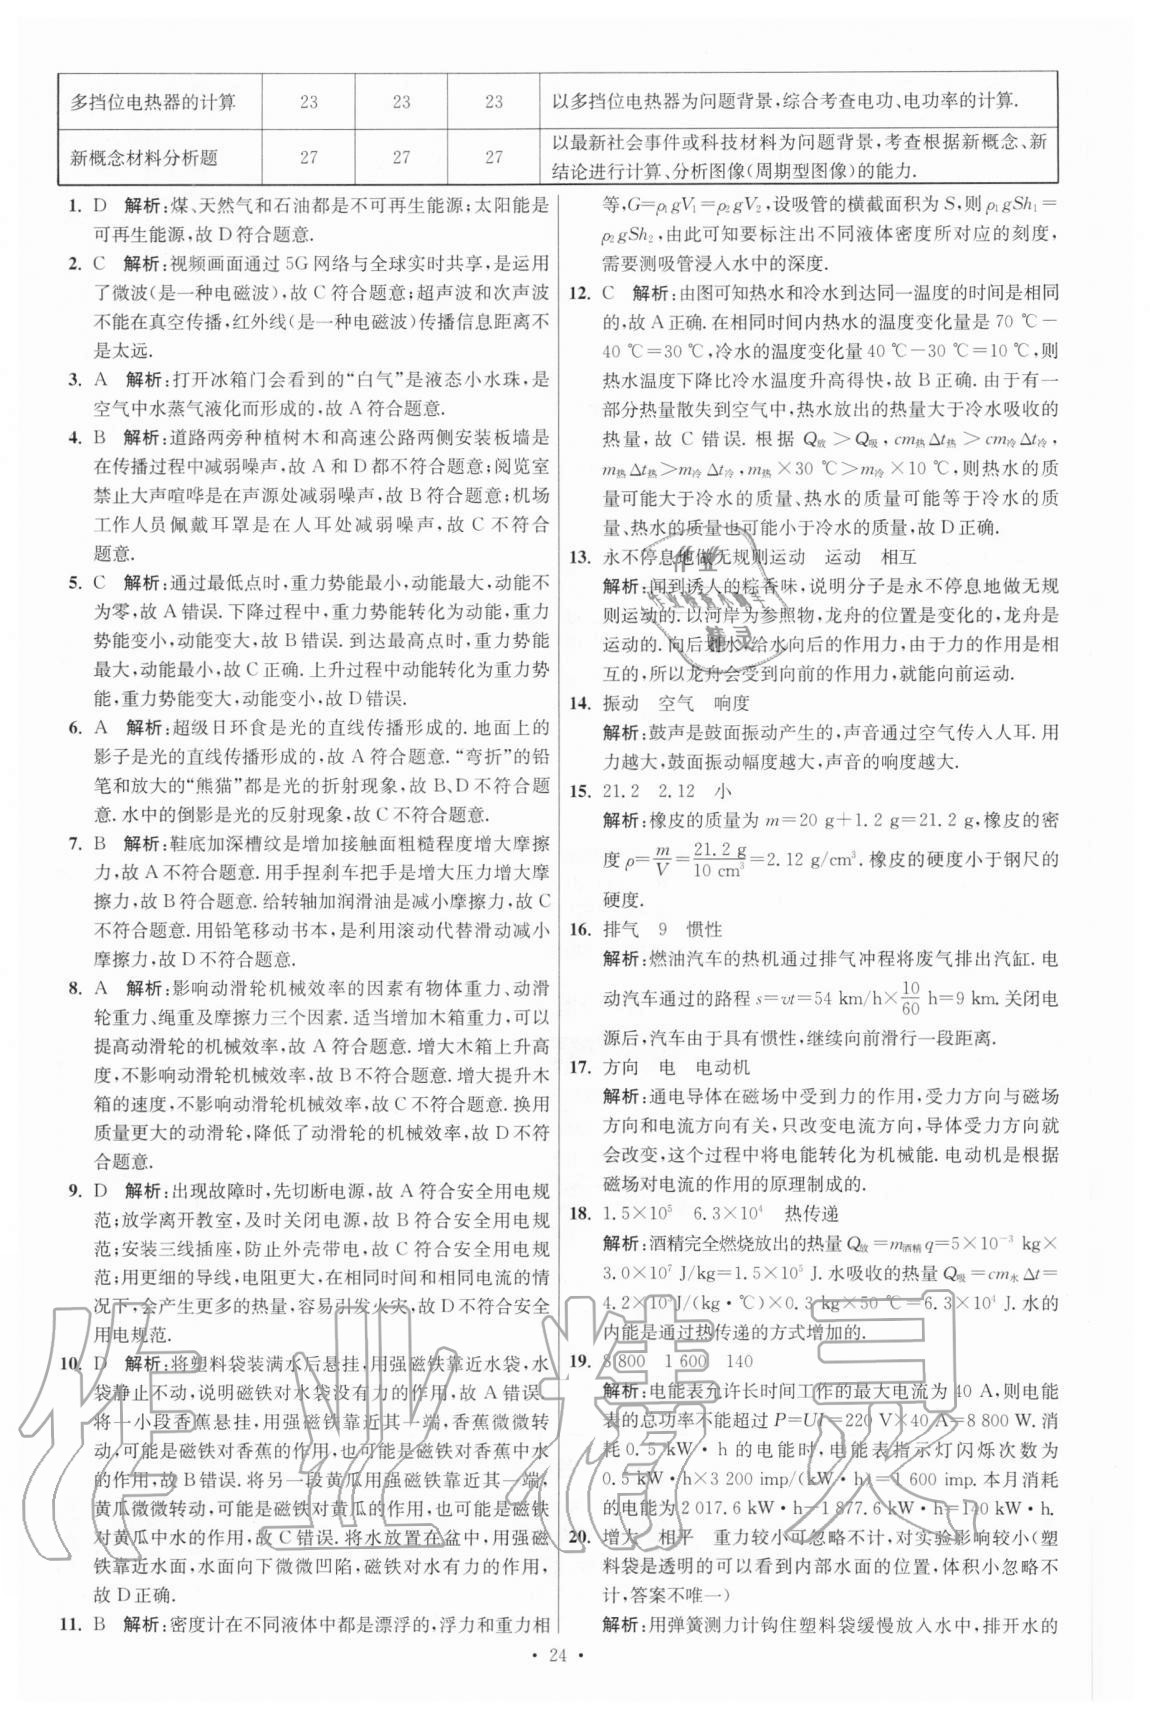 多挡位电热器的计算 23 23 23 以多挡位电热器为问题背景,综合考查电功、电功率的计算.
新概念材料分析题 27 27 27 以最新社会事件或科技材料为问题背景,考查根据新概念、新
结论进行计算、分析图像(周期型图像)的能力.
1. D 解析:煤、天然气和石油都是不可再生能源;太阳能是
可再生能源,故 D符合题意.
2. C 解析:视频画面通过 5G 网络与全球实时共享,是运用
了微波(是一种电磁波),故 C 符合题意;超声波和次声波
不能在真空传播,红外线(是一种电磁波)传播信息距离不
是太远.
3. A 解析:打开冰箱门会看到的“白气”是液态小水珠,是
空气中水蒸气液化而形成的,故 A符合题意.
4. B 解析:道路两旁种植树木和高速公路两侧安装板墙是
在传播过程中减弱噪声,故 A 和 D都不符合题意;阅览室
禁止大声喧哗是在声源处减弱噪声,故 B 符合题意;机场
工作人员佩戴耳罩是在人耳处减弱噪声,故 C 不符合
题意.
5. C 解析:通过最低点时,重力势能最小,动能最大,动能不
为零,故 A错误. 下降过程中,重力势能转化为动能,重力
势能变小,动能变大,故 B错误. 到达最高点时,重力势能
最大,动能最小,故 C正确. 上升过程中动能转化为重力势
能,重力势能变大,动能变小,故 D错误.
6. A 解析:超级日环食是光的直线传播形成的. 地面上的
影子是光的直线传播形成的,故 A 符合题意. “弯折”的铅
笔和放大的“熊猫”都是光的折射现象,故 B、D不符合题
意. 水中的倒影是光的反射现象,故 C不符合题意.
7. B 解析:鞋底加深槽纹是增加接触面粗糙程度增大摩擦
力,故 A不符合题意. 用手捏刹车把手是增大压力增大摩
擦力,故 B符合题意. 给转轴加润滑油是减小摩擦力,故 C
不符合题意. 用铅笔移动书本,是利用滚动代替滑动减小
摩擦力,故 D不符合题意.
8. A 解析:影响动滑轮机械效率的因素有物体重力、动滑
轮重力、绳重及摩擦力三个因素. 适当增加木箱重力,可以
提高动滑轮的机械效率,故 A符合题意. 增大木箱上升高
度,不影响动滑轮机械效率,故 B不符合题意. 增大提升木
箱的速度,不影响动滑轮机械效率,故 C不符合题意. 换用
质量更大的动滑轮,降低了动滑轮的机械效率,故 D 不符
合题意.
9. D 解析:出现故障时,先切断电源,故 A 符合安全用电规
范;放学离开教室,及时关闭电源,故 B 符合安全用电规
范;安装三线插座,防止外壳带电,故 C 符合安全用电规
范;用更细的导线,电阻更大,在相同时间和相同电流的情
况下,会产生更多的热量,容易引发火灾,故 D不符合安全
用电规范.
10. D 解析:将塑料袋装满水后悬挂,用强磁铁靠近水袋,水
袋静止不动,说明磁铁对水袋没有力的作用,故 A 错误.
将一小段香蕉悬挂,用强磁铁靠近其一端,香蕉微微转
动,可能是磁铁对香蕉的作用,也可能是磁铁对香蕉中水
的作用,故 B错误. 将另一段黄瓜用强磁铁靠近其一端,
黄瓜微微转动,可能是磁铁对黄瓜的作用,也可能是磁铁
对黄瓜中水的作用,故 C错误. 将水放置在盆中,用强磁
铁靠近水面,水面向下微微凹陷,磁铁对水有力的作用,
故 D正确.
11. B 解析:密度计在不同液体中都是漂浮的,浮力和重力相
等,G=ρ₁gV₁=ρ₂gV₂,设吸管的横截面积为 S,则 ρ₁gSh₁=
ρ₂gSh₂,由此可知要标注出不同液体密度所对应的刻度,
需要测吸管浸入水中的深度.
12. C 解析:由图可知热水和冷水到达同一温度的时间是相同
的,故 A 正确. 在相同时间内热水的温度变化量是 70 ℃−
40 ℃=30 ℃,冷水的温度变化量 40 ℃−30 ℃=10 ℃,则
热水温度下降比冷水温度升高得快,故 B 正确. 由于有一
部分热量散失到空气中,热水放出的热量大于冷水吸收的
热量,故 C 错误. 根据 Q放>Q吸,cm热Δt热>cm冷Δt冷,
m热Δt热>m冷Δt冷,m热×30 ℃>m冷×10 ℃,则热水的质
量可能大于冷水的质量、热水的质量可能等于冷水的质
量、热水的质量也可能小于冷水的质量,故 D正确.
13. 永不停息地做无规则运动 运动 相互
解析:闻到诱人的粽香味,说明分子是永不停息地做无规
则运动的. 以河岸为参照物,龙舟的位置是变化的,龙舟是
运动的. 向后划水,给水向后的作用力,由于力的作用是相
互的,所以龙舟会受到向前的作用力,就能向前运动.
14. 振动 空气 响度
解析:鼓声是鼓面振动产生的,声音通过空气传入人耳. 用
力越大,鼓面振动幅度越大,声音的响度越大.
15. 21.2 2.12 小
解析:橡皮的质量为 m=20 g+1.2 g=21.2 g,橡皮的密
度 ρ=m/V=21.2 g/10 cm³=2.12 g/cm³. 橡皮的硬度小于钢尺的
硬度.
16. 排气 9 惯性
解析:燃油汽车的热机通过排气冲程将废气排出汽缸. 电
动汽车通过的路程 s=vt=54 km/h×10/60 h=9 km. 关闭电
源后,汽车由于具有惯性,继续向前滑行一段距离.
17. 方向 电 电动机
解析:通电导体在磁场中受到力的作用,受力方向与磁场
方向和电流方向有关,只改变电流方向,导体受力方向就
会改变,这个过程中将电能转化为机械能. 电动机是根据
磁场对电流的作用的原理制成的.
18. 1.5×10⁵ 6.3×10⁴ 热传递
解析:酒精完全燃烧放出的热量 Q放=m酒精q=5×10⁻³ kg×
3.0×10⁷ J/kg=1.5×10⁵ J. 水吸收的热量 Q吸=cm水Δt=
4.2×10³J/(kg·℃)×0.3 kg×50 ℃=6.3×10⁴ J. 水的
内能是通过热传递的方式增加的.
19. 8 800 1 600 140
解析:电能表允许长时间工作的最大电流为 40 A,则电能
表的总功率不能超过 P=UI=220 V×40 A=8 800 W. 消
耗 0.5 kW·h 的电能时,电能表指示灯闪烁次数为
0.5 kW·h×3 200 imp/(kW·h)=1 600 imp. 本月消耗
的电能为 2 017.6 kW·h−1 877.6 kW·h=140 kW·h.
20. 增大 相平 重力较小可忽略不计,对实验影响较小(塑
料袋是透明的可以看到内部水面的位置,体积小忽略不
计,答案不唯一)
解析:用弹簧测力计钩住塑料袋缓慢放入水中,排开水的
· 24 ·
作业精灵